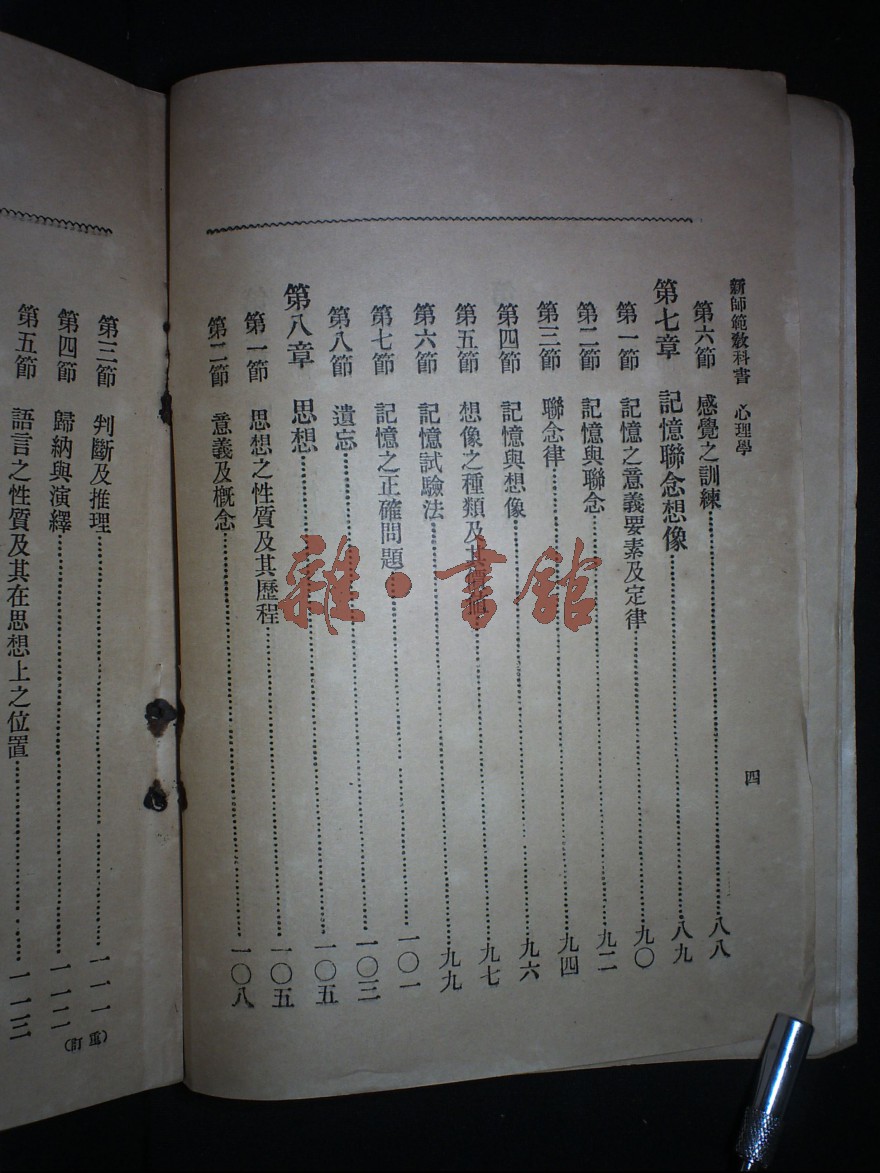 新師範教科書 心理學
四
第六節 感覺之訓練 八八
第七章 記憶聯念想像 八九
第一節 記憶之意義要素及定律 九〇
第二節 記憶與聯念 九二
第三節 聯念律 九四
第四節 記憶與想像 九六
第五節 想像之種類及其價值 九七
第六節 記憶試驗法 九九
第七節 記憶之正確問題 一〇一
第八節 遺忘 一〇三
第八章 思想 一〇五
第一節 思想之性質及其歷程 一〇五
第二節 意義及概念 一〇八
第三節 判斷及推理 一一一
第四節 歸納與演繹 一一二
第五節 語言之性質及其在思想上之位置 一一三
(重訂)
雜·書館